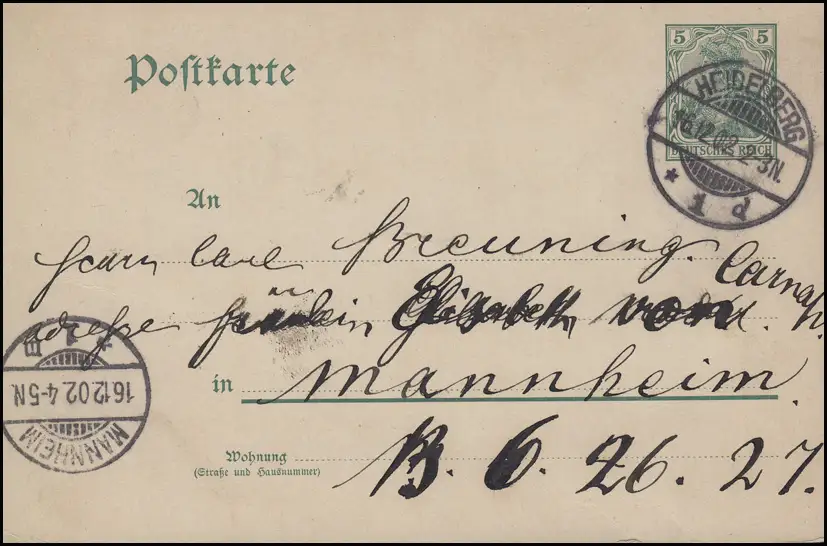 Postkarte
5 5
DEUTSCHES REICH
HEIDELBERG
16.12.02. 2-3N.
* 1 d *
An
Herrn Carl Breuning.
adresse Fräulein Elisabeth von Carnap.
in Mannheim
Wohnung
(Straße und Hausnummer)
B. 6. 26. 27.
MANNHEIM
16.12.02. 4-5N.